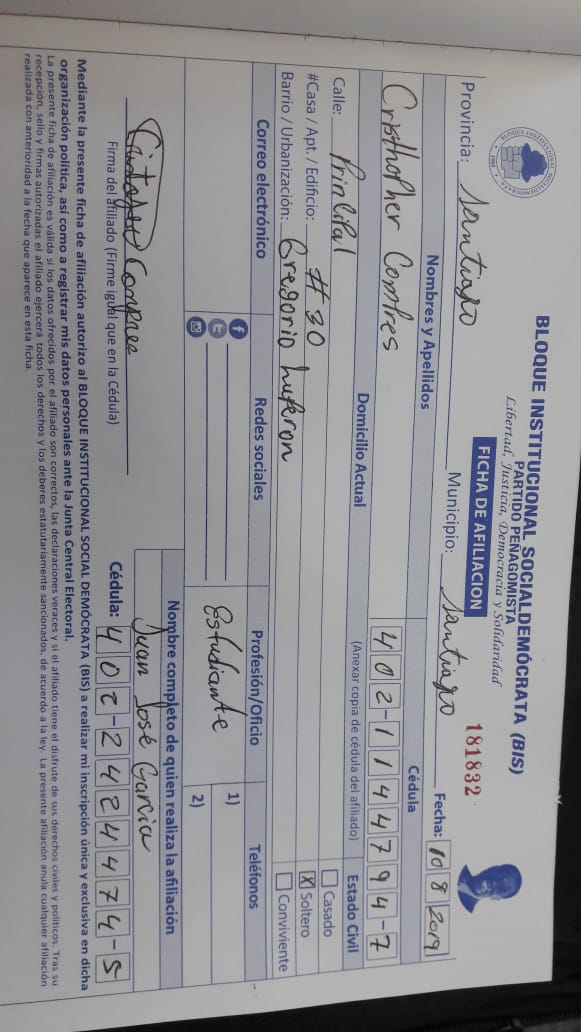 BLOQUE INSTITUCIONAL SOCIALDEMÓCRATA (BIS)
PARTIDO PEÑAGOMISTA
Libertad, Justicia, Democracia y Solidaridad
FICHA DE AFILIACION
181832
Provincia: Santiago Municipio: Santiago Fecha: 10 8 2019
Nombres y Apellidos Cédula
Cristhofher Comfres 402-1144794-7
Domicilio Actual (Anexar copia de cédula del afiliado) Estado Civil
Calle: Princifal Casado
#Casa / Apt. / Edificio: #30 X Soltero
Barrio / Urbanización: Gregorio Luferon Conviviente
Correo electrónico Redes sociales Profesión/Oficio Teléfonos
Estudiante 1)
2)
Nombre completo de quien realiza la afiliación
Juan José Garcia
Firma del afiliado (Firme igual que en la Cédula) Cédula: 402-2424474-5
Mediante la presente ficha de afiliación autorizo al BLOQUE INSTITUCIONAL SOCIAL DEMÓCRATA (BIS) a realizar mi inscripción única y exclusiva en dicha
organización política, así como a registrar mis datos personales ante la Junta Central Electoral.
La presente ficha de afiliación es válida si los datos ofrecidos por el afiliado son correctos, las declaraciones veraces y si el afiliado tiene el disfrute de sus derechos civiles y políticos. Tras su
recepción, sello y firmas autorizadas el afiliado ejercerá todos los derechos y los deberes estatutariamente sancionados, de acuerdo a la ley. La presente afiliación anula cualquier afiliación
realizada con anterioridad a la fecha que aparece en esta ficha.